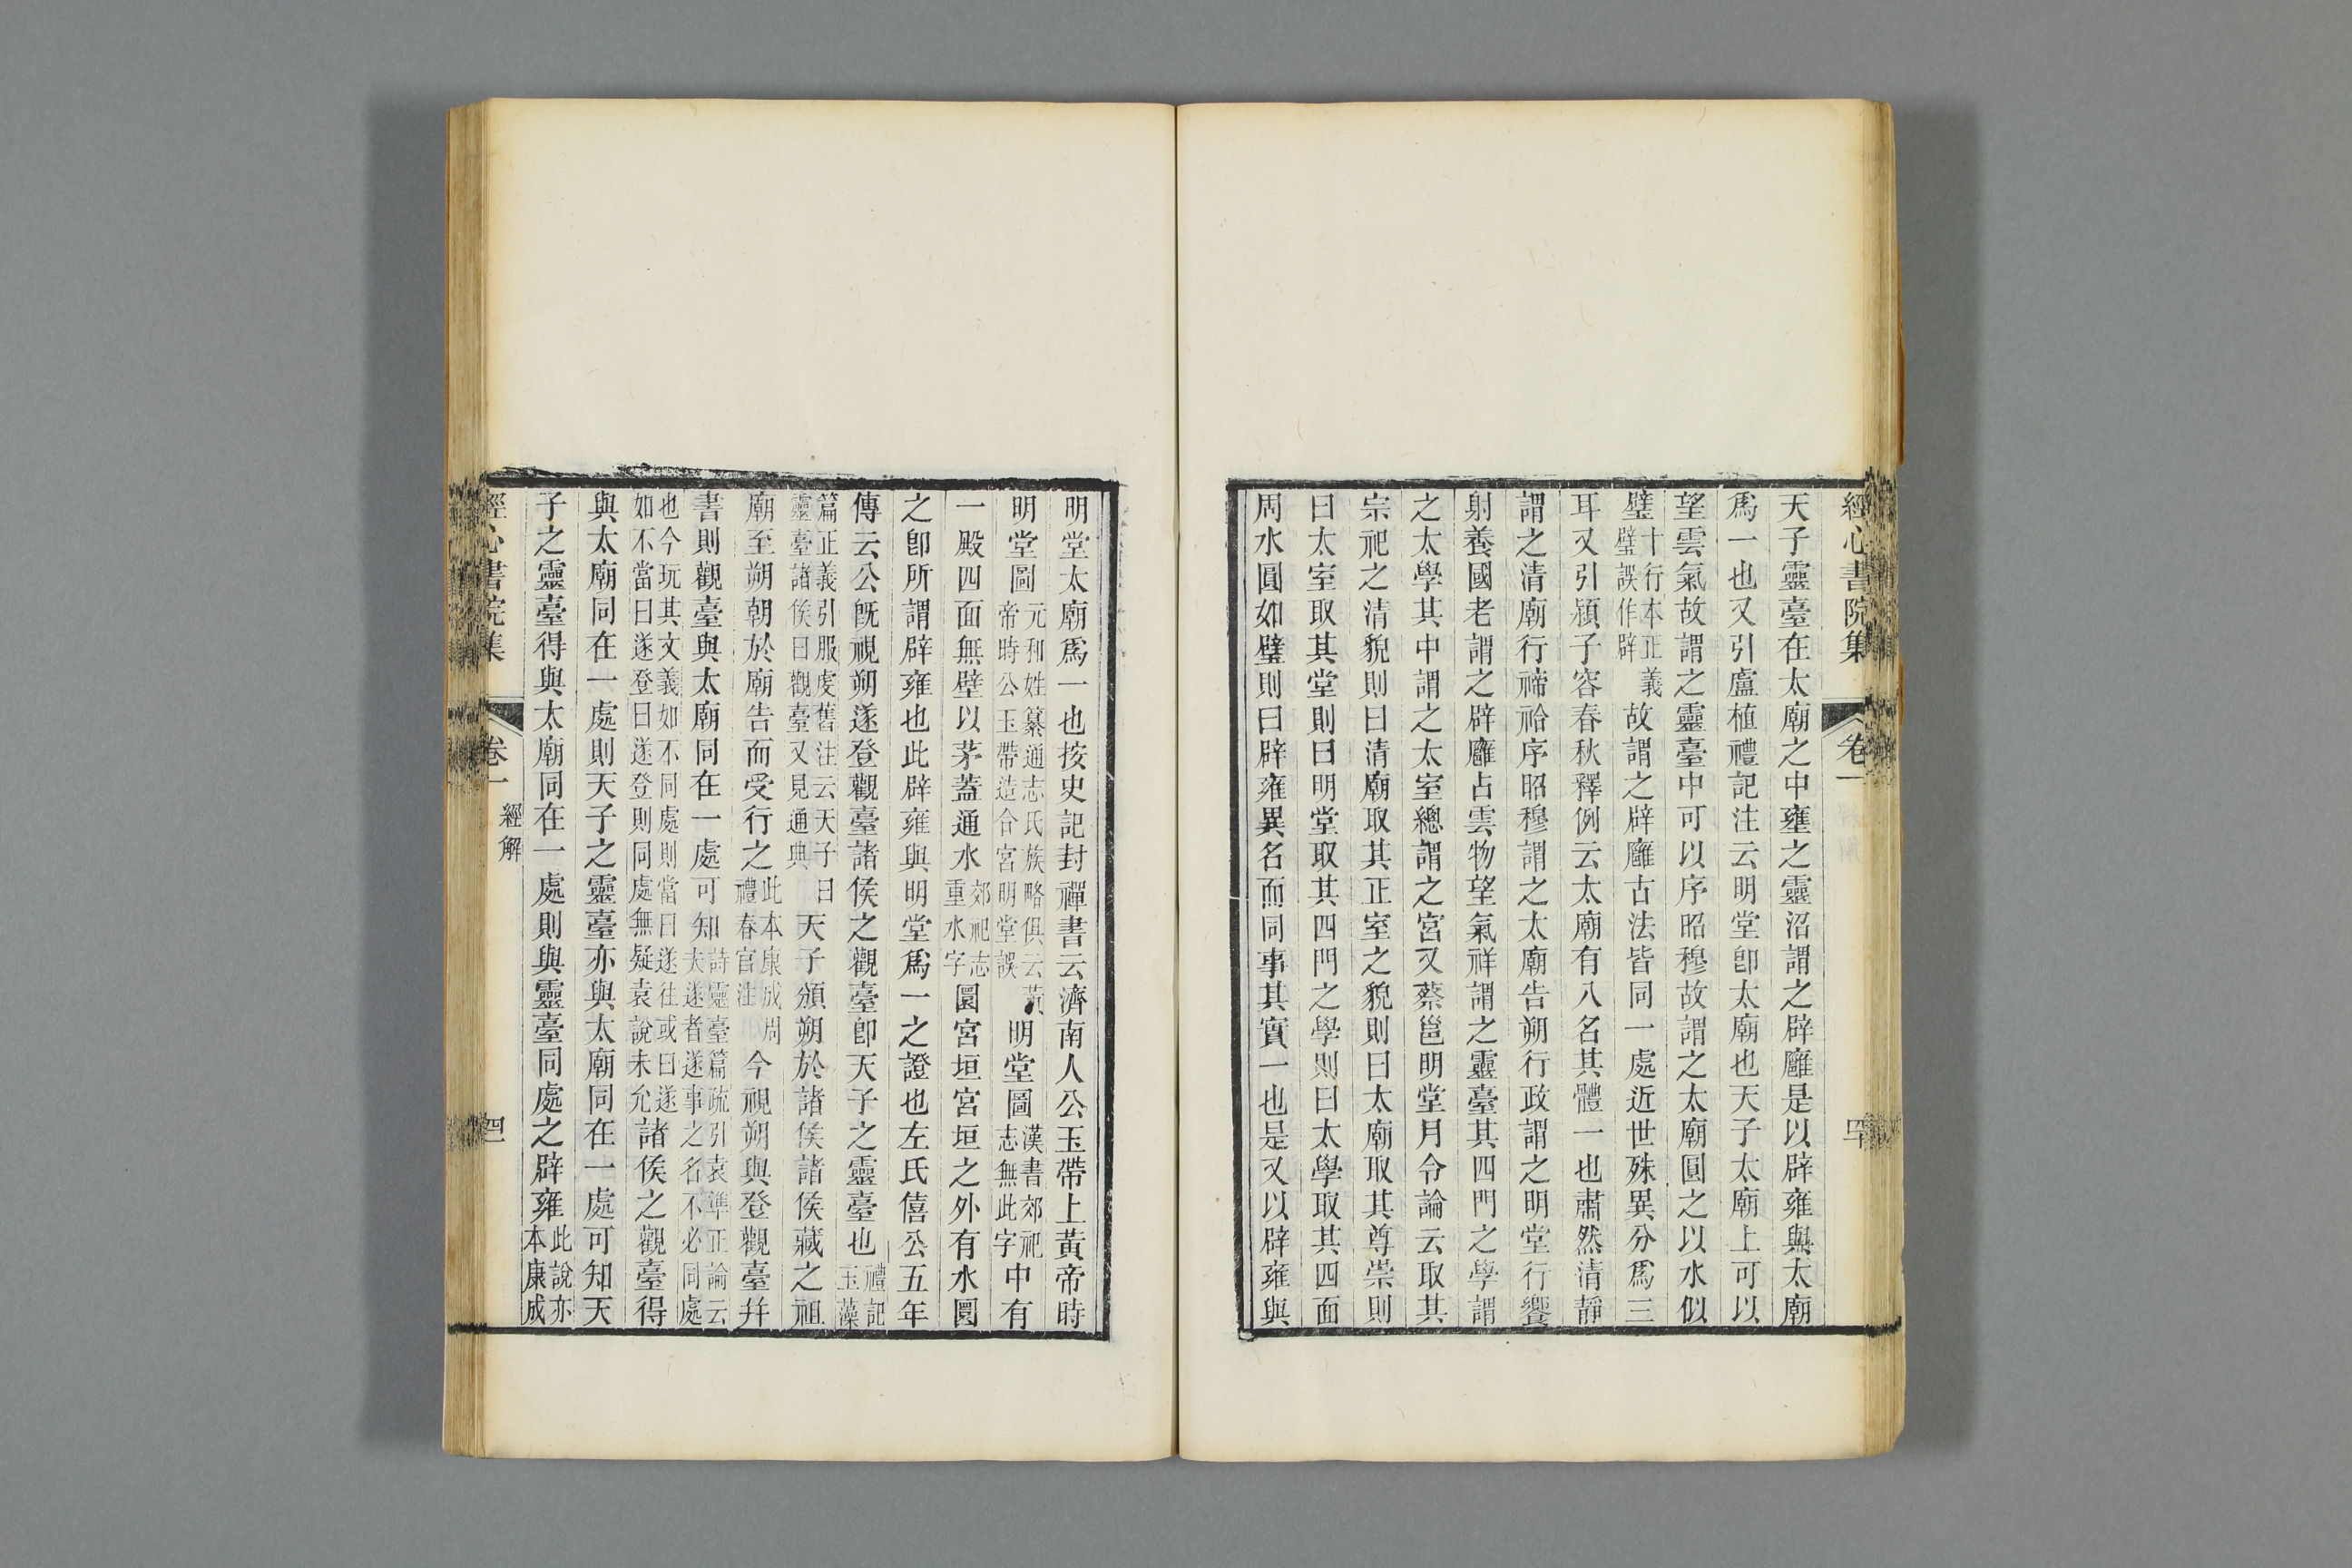 經心書院集 卷一
天子靈臺在太廟之中壅之靈沼謂之辟廱是以辟雍與太廟
爲一也又引盧植禮記注云明堂卽太廟也天子太廟上可以
望雲氣故謂之靈臺中可以序昭穆故謂之太廟圓之以水似
璧十行本正義璧誤作辟故謂之辟廱古法皆同一處近世殊異分爲三
耳又引潁子容春秋釋例云太廟有八名其體一也肅然清靜
謂之清廟行禘祫序昭穆謂之太廟告朔行政謂之明堂行饗
射養國老謂之辟廱占雲物望氣祥謂之靈臺其四門之學謂
之太學其中謂之太室總謂之宮又蔡邕明堂月令論云取其
宗祀之清貌則曰清廟取其正室之貌則曰太廟取其尊崇則
曰太室取其堂則曰明堂取其四門之學則曰太學取其四面
周水圓如璧則曰辟雍異名而同事其實一也是又以辟雍與
明堂太廟爲一也按史記封禪書云濟南人公玉帶上黃帝時
明堂圖元和姓纂通志氏族略俱云黃帝時公玉帶造合宮明堂誤明堂圖漢書郊祀志無此字中有
一殿四面無壁以茅蓋通水郊祀志重水字圜宮垣宮垣之外有水圜
之卽所謂辟雍也此辟雍與明堂爲一之證也左氏僖公五年
傳云公旣視朔遂登觀臺諸侯之觀臺卽天子之靈臺也禮記玉藻
篇正義引服虔舊注云天子曰靈臺諸侯曰觀臺又見通典天子頒朔於諸侯諸侯藏之祖
廟至朔朝於廟告而受行之此本康成周禮春官注今視朔與登觀臺幷
書則觀臺與太廟同在一處可知詩靈臺篇疏引袁準正論云夫遂者遂事之名不必同處
也今玩其文義如不同處則當曰遂往或曰遂如不當曰遂登曰遂登則同處無疑袁說未允諸侯之觀臺得
與太廟同在一處則天子之靈臺亦與太廟同在一處可知天
子之靈臺得與太廟同在一處則與靈臺同處之辟雍此說亦本康成
經心書院集 卷一 經解